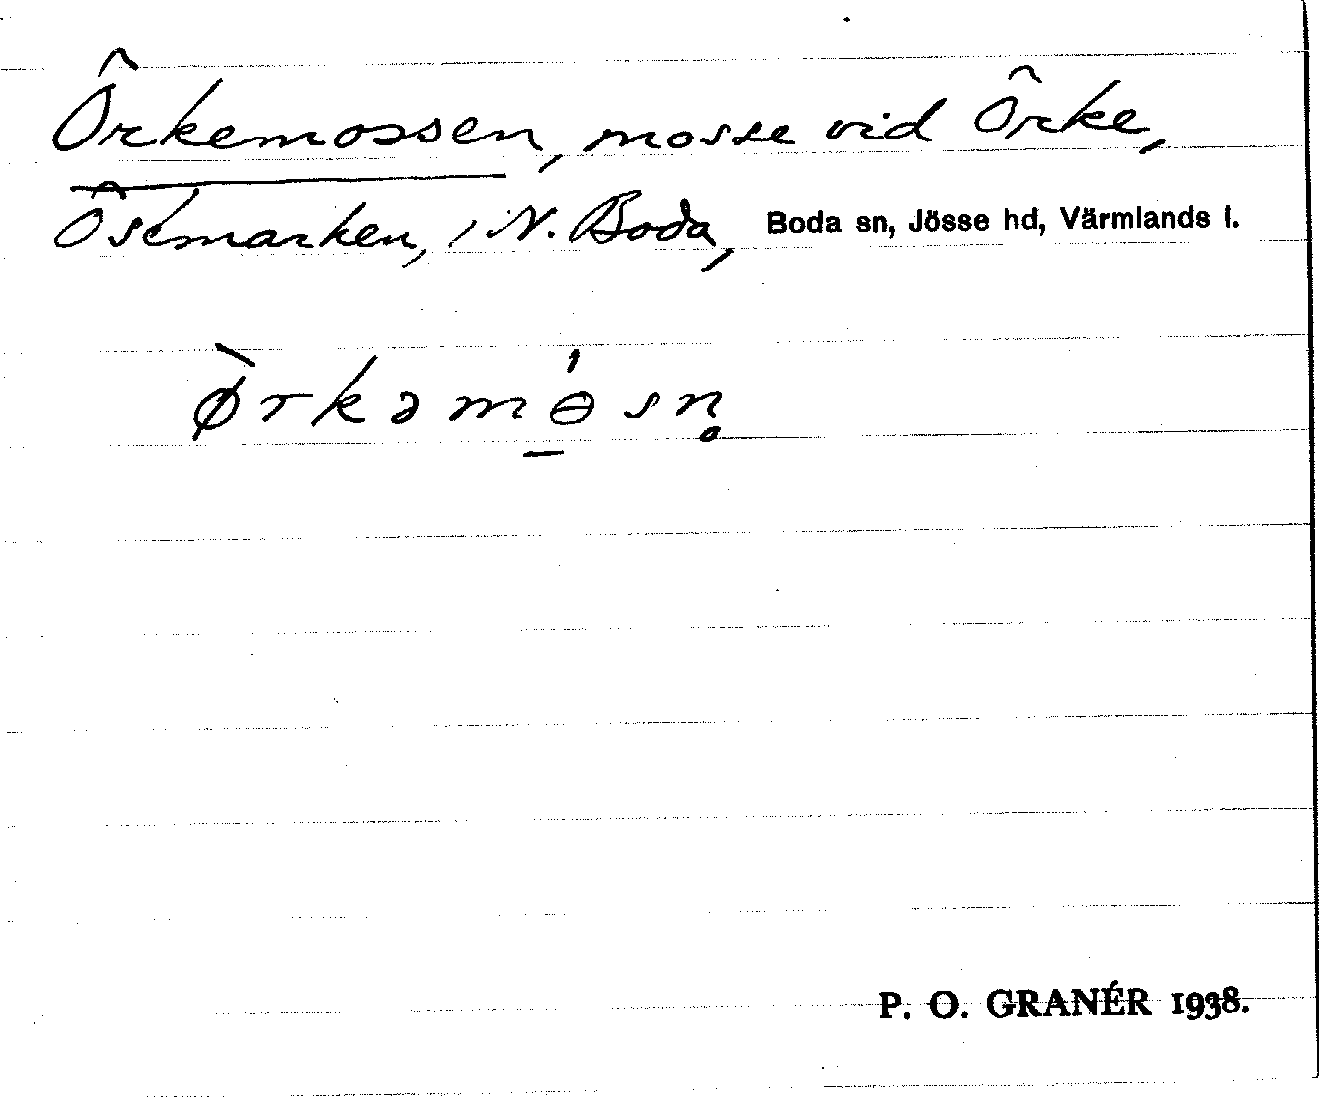 Örkemossen, mosse vid Örke,
Östmarken, i N. Boda, Boda sn, Jösse hd, Värmlands l.
ø̀rkəmɵ́sn̥
P. O. GRANÉR 1938.